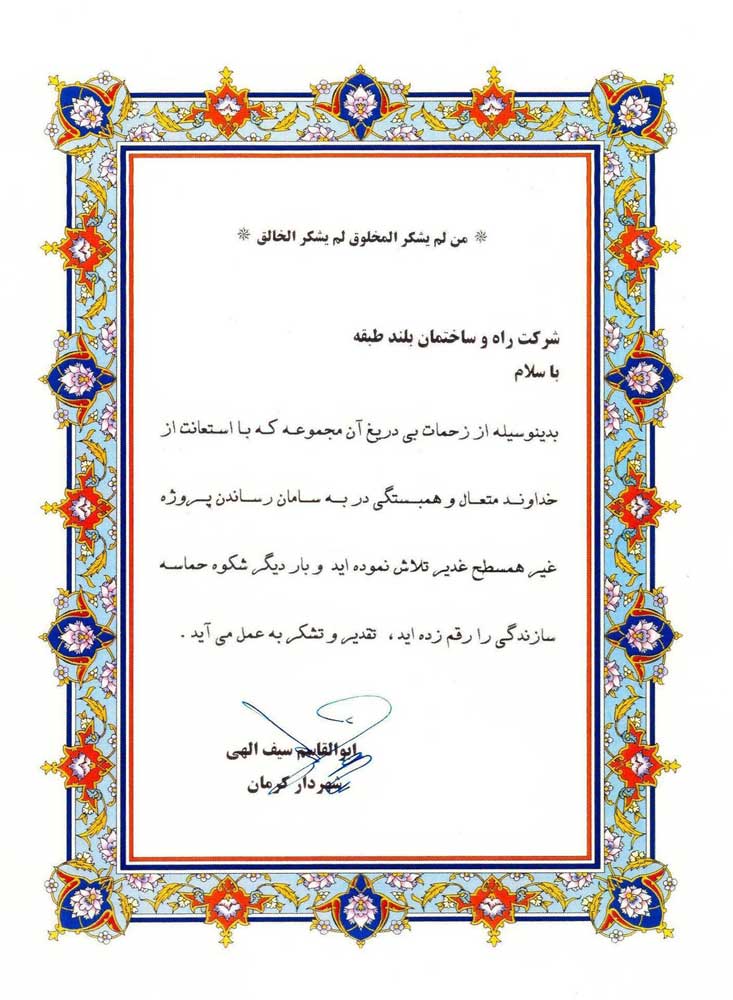 ❋ من لم یشکر المخلوق لم یشکر الخالق ❋
شرکت راه و ساختمان بلند طبقه
با سلام
بدینوسیله از زحمات بی دریغ آن مجموعه که با استعانت از
خداوند متعال و همبستگی در به سامان رساندن پروژه
غیر همسطح غدیر تلاش نموده اید و بار دیگر شکوه حماسه
سازندگی را رقم زده اید، تقدیر و تشکر به عمل می آید.
ابوالقاسم سیف الهی
شهردار کرمان